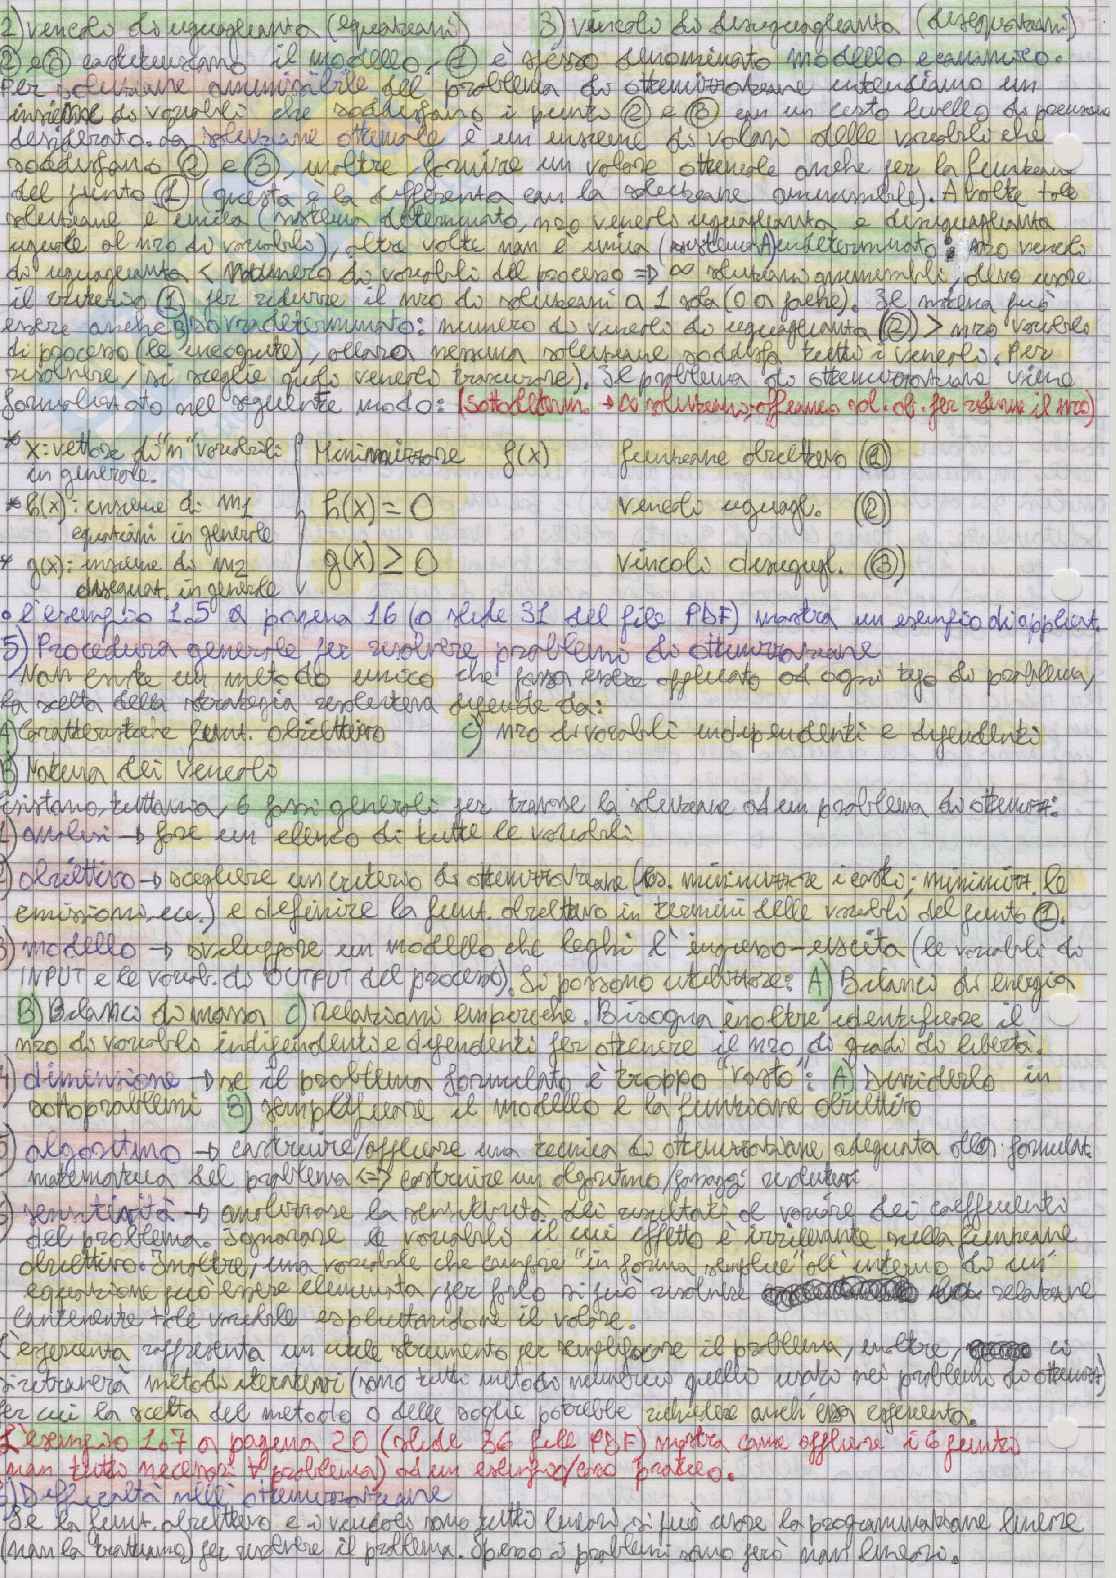 2) vincoli di uguaglianza (equazioni) 3) vincoli di disuguaglianza (disequazioni)
② e ③ costituiscono il modello, ① è spesso denominato modello economico.
Per soluzione ammissibile del problema di ottimizzazione intendiamo un
insieme di variabili che soddisfano i punti ② e ③ con un certo livello di precisione
desiderato. La soluzione ottimale è un insieme di valori delle variabili che
soddisfano ② e ③, inoltre, fornire un valore ottimale anche per la funzione
del punto ① (questa è la differenza con la soluzione ammissibile). A volte tale
soluzione è unica (sistema determinato, nro vincoli uguaglianza e disuguaglianza
uguale al nro di variabili), altre volte non è unica (sistema A) indeterminato: nro vincoli
di uguaglianza < numero di variabili del processo => ∞ soluzioni ammissibili, devo usare
il criterio ① per ridurre il nro di soluzioni a 1 sola (o a poche). Il sistema può
essere anche B) sovradeterminato: numero di vincoli di uguaglianza (②) > nro variabili
di processo (le incognite), allora nessuna soluzione soddisfa tutti i vincoli. Per
risolvere, si sceglie quali vincoli trascurare). Il problema di ottimizzazione viene
formalizzato nel seguente modo: (sottodeterm. → ∞ soluzioni, offriamo sol. ob. per ridurne il nro)
* x: vettore di "n" variabili Minimizzare f(x) funzione obiettivo (①)
in generale.
* h(x): insieme di m1 h(x) = 0 vincoli uguagl. (②)
equazioni in generale
* g(x): insieme di m2 g(x) ≥ 0 vincoli disuguagl. (③)
disequaz. in generale
• L'esempio 1.5 a pagina 16 (o slide 31 del file PDF) mostra un esempio di applicat.
5) Procedura generale per risolvere problemi di ottimizzazione
Non esiste un metodo unico che possa essere applicato ad ogni tipo di problema,
la scelta della strategia risolutiva dipende da:
A) Caratteristiche funz. obiettivo C) nro di variabili indipendenti e dipendenti
B) Natura dei vincoli
Esistono, tuttavia, 6 passi generali per trovare la soluzione ad un problema di ottimizz.:
1) analisi → fare un elenco di tutte le variabili
2) obiettivo → scegliere un criterio di ottimizzazione (es. minimizzare i costi; minimizz. le
emissioni, ecc.) e definire la funz. obiettivo in termini delle variabili del punto ①.
3) modello → sviluppare un modello che leghi l'ingresso-uscita (le variabili di
INPUT e le variab. di OUTPUT del processo). Si possono utilizzare: A) Bilanci di energia
B) Bilanci di massa C) relazioni empiriche. Bisogna inoltre identificare il
nro di variabili indipendenti e dipendenti per ottenere il nro di gradi di libertà.
4) dimensione → se il problema formulato è troppo "vasto": A) Dividerlo in
sottoproblemi B) semplificare il modello e la funzione obiettivo
5) algoritmo → costruire/applicare una tecnica di ottimizzazione adeguata alla formulaz.
matematica del problema <=> costruire un algoritmo/passaggi risolutivi
6) sensitività → analizzare la sensitività dei risultati al variare dei coefficienti
del problema. Ignorare le variabili il cui effetto è irrilevante nella funzione
obiettivo. Inoltre, una variabile che compare "in forma semplice" all'interno di un'
equazione può essere eliminata, per farlo si può risolvere relazione
contenente tale variabile esplicitandone il valore.
L'esperienza rappresenta un utile strumento per semplificare il problema, inoltre, ci
si troverà metodi iterativi (sono tutti metodi numerici quelli usati nei problemi di ottimizz)
per cui la scelta del metodo o delle soglie potrebbe richiedere anch'essa esperienza.
L'esempio 1.7 a pagina 20 (slide 36 file PDF) mostra come applicare i 6 punti
(non tutti necessari ∀ problema) ad un esempio/caso pratico.
Difficoltà nell'ottimizzazione
Se la funz. obiettivo e i vincoli sono tutti lineari, si può usare la programmazione lineare
(non la trattiamo) per risolvere il problema. Spesso i problemi sono però non lineari.